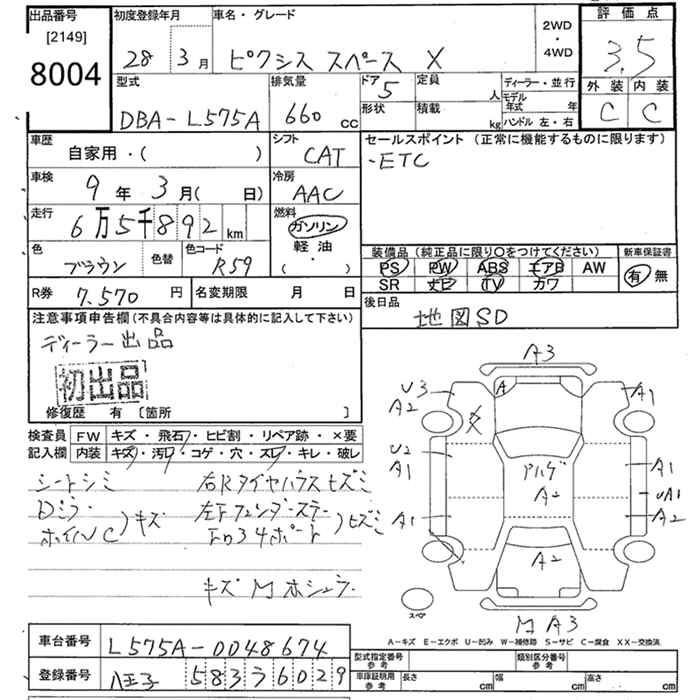 出品番号
[2149]
8004
初度登録年月
28年 3月
車名・グレード
ピクシス スペース X
2WD
・
4WD
評価点
3.5
外装 内装
C C
型式
DBA-L575A
排気量
660 cc
ドア 5
定員 人
形状
積載 kg
ディーラー・並行
モデル年式 年
ハンドル 左・右
車歴
自家用・( )
シフト
CAT
セールスポイント (正常に機能するものに限ります)
・ETC
車検
9年 3月( 日)
冷房
AAC
走行
6万5千892 km
燃料
ガソリン
軽油
( ・ )
色
ブラウン
色替
色コード
R59
装備品(純正品に限り○をつけてください)
PS PW ABS エアB AW
SR ナビ TV カワ
新車保証書
有 無
R券 7.570 円
名変期限 月 日
後日品
地図SD
注意事項申告欄(不具合内容等は具体的に記入して下さい)
ディーラー出品
初出品
修復歴 有 [箇所 ]
検査員 FW キズ・飛石・ヒビ割・リペア跡・×要
記入欄 内装 キズ・汚レ・コゲ・穴・スレ・キレ・破レ
シートシミ
Dミラー
ホイルC
)キズ
右Rタイヤハウスヒズミ
)ヒズミ
キズ
A3
U3
A2
A
A1
U2
A1
A1
A2
A1
UA1
A2
A2
A3
スペア
A-キズ E-エクボ U-凹み W-補修跡 S-サビ C-腐食 XX-交換済
車台番号 L575A-0048674
登録番号 八王子 583 6029
型式指定番号
参考
類別区分番号
参考
車庫証明用
参考
長さ cm
幅 cm
高さ cm